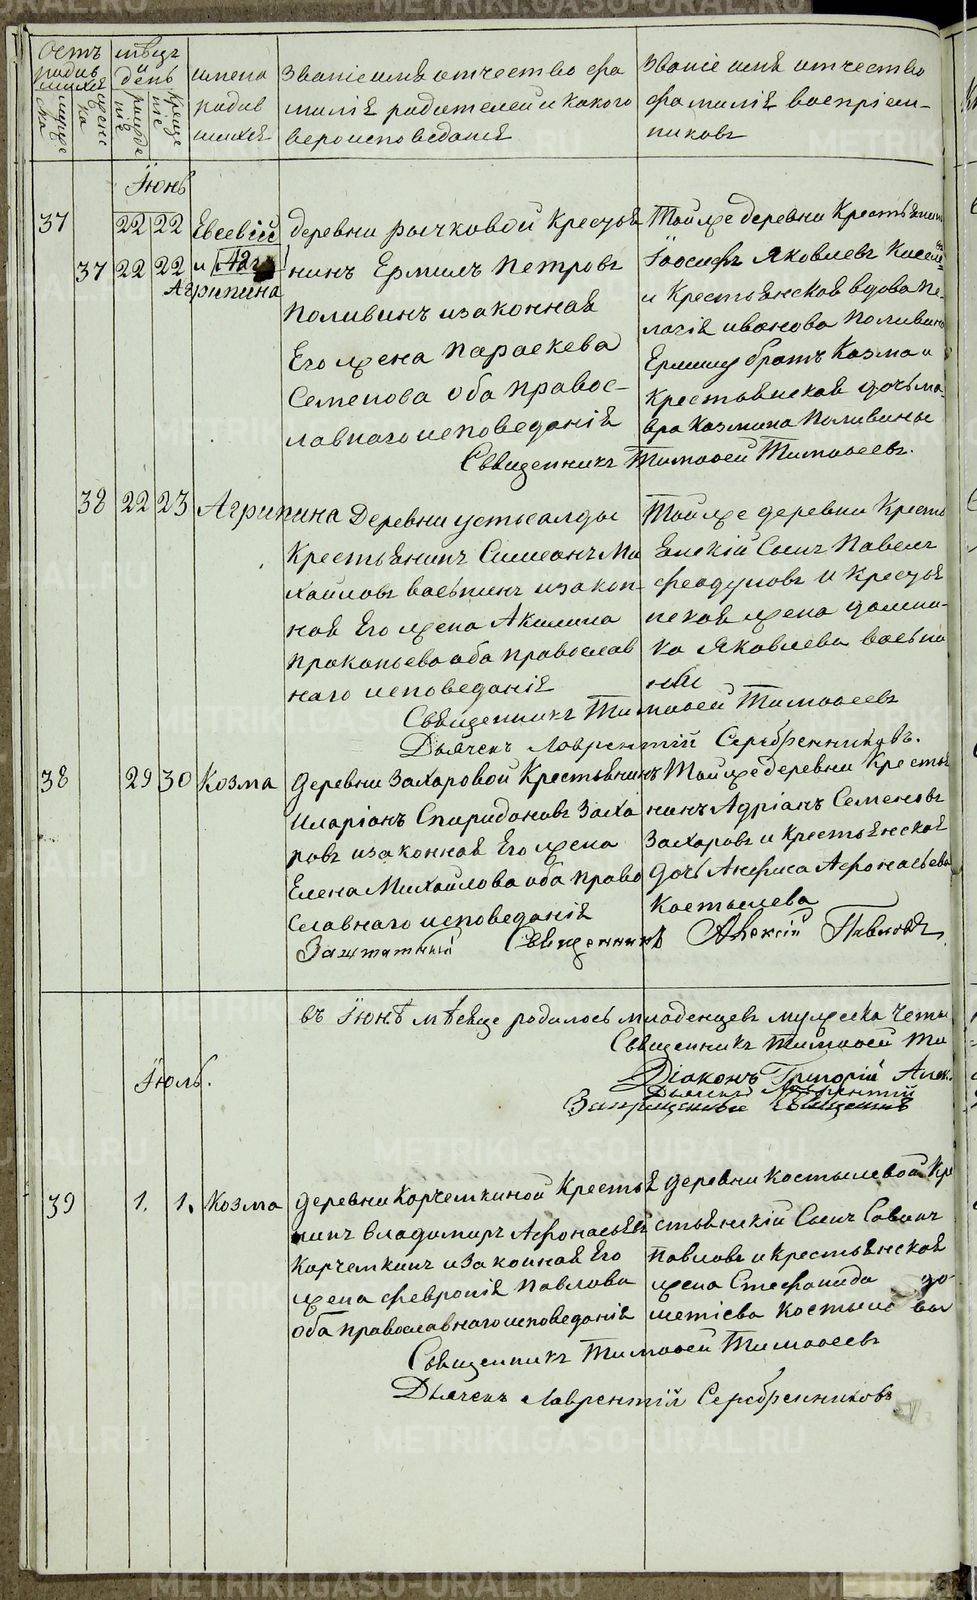 Имена родив шихся
Званіе имя отчество фа милія родителей и какого вероисповеданія
Званіе имя отчество фамилія воспріем- никовъ
Іюнь
37 22 22 Евсевій
37 22 22 и
Агрипина
деревни рычковой Крестья
нинъ Ермилъ Петровъ
Поливинъ изаконная
Его жена Параскева
Семенова оба Правос-
лавнаго исповеданія
Тойже деревни Крестьянинъ
Іосифъ Яковлевъ
и Крестьянская вдова Пе-
лагія иванова Поливина
Ермилу братъ Козма и
Крестьянская дочь ма-
вра Козмина Поливины
Священникъ Тимофей Тимофеевъ.
38 22 23 Агрипина
Деревни устьсалды
Крестьянинъ Симеонъ Ми
хайловъ васькинъ изакон-
ная Его жена Акилина
Прокопьева оба Православ
наго исповеданія
Тойже деревни Кресть
янскій Сынъ Павелъ
феодуловъ и Крестья
нская жена домни-
ка Яковлева
Священникъ Тимофей Тимофеевъ
Дьячекъ Лаврентій Серебренниковъ.
38 29 30 Козма
Деревни Захаровой Крестьянинъ
Иларіонъ Спиридоновъ Заха
ровъ изаконная Его жена
Елена Михайлова оба Право
славнаго исповеданія
Тойже деревни Кресть
нинъ Адріанъ Семеновъ
Захаровъ и Крестьянская
Дочь Анфиса Афонасьева
Костылева
Заштатный Священникъ Алексій Павловъ
въ Іюнѣ мѣсяце родилось младенцевъ мужеска четы
Священникъ Тимофей Ти
Діаконъ Григорій Алек.
Дьячекъ Лаврентій
Іюль.
39 1. 1. Козма
деревни Корчемкиной Кресть
нинъ Владимиръ Афонасьевъ
Корчемкинъ изаконная Его
жена февронія Павлова
оба православнаго исповеданія
деревни Костылевой Кре
стьянскій Сынъ Саванъ
Павловъ и Крестьянская
жена Стефанида до
метіева Костылева
Священникъ Тимофей Тимофеевъ
Дьячекъ Лаврентій Серебренниковъ
METRIKI.GASO-URAL.RU